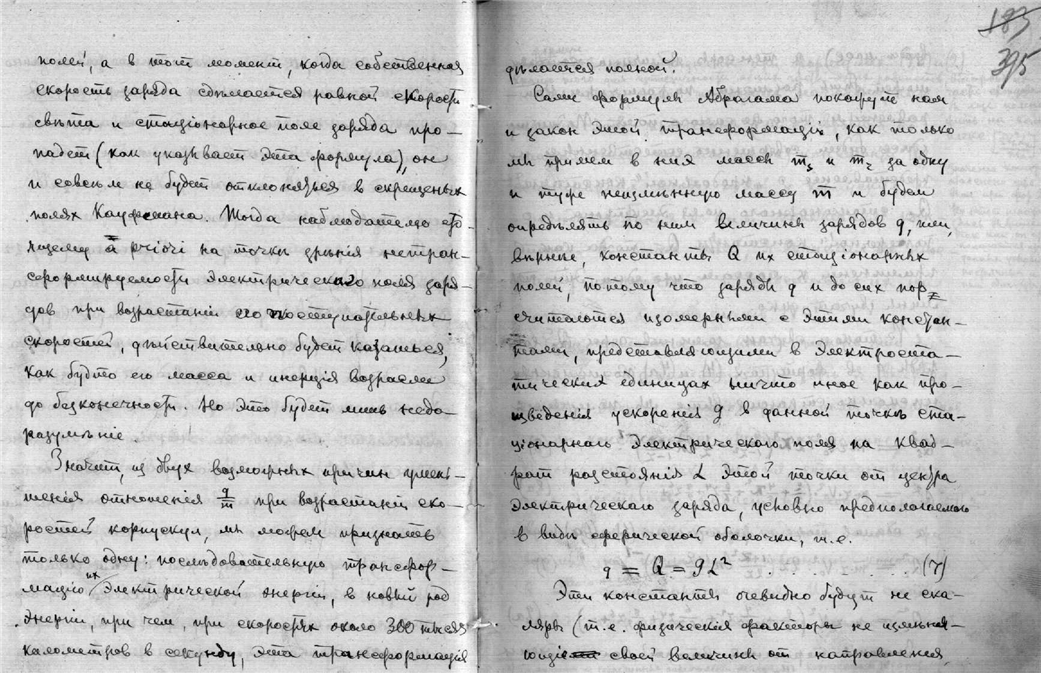 полей, а в тот момент, когда собственная
скорость заряда сдѣлается равной скорости
свѣта и стаціонарное поле заряда про-
падет (как указывает эта формула), он
и совсем не будет отклоняться в скрещеных
полях Кауфмана. Тогда наблюдателю сто-
ящему à priori на точкѣ зрѣнія нетран-
сформируемости электрическаго поля заря-
дов при возрастаніи их поступательных
скоростей, дѣйствительно будет казаться,
как будто его масса и инерція возрасли
до безконечности. Но это будет лишь недо-
разумѣніе.
Значит, из двух возможных причин умень-
шенія отношенія q/m при возрастаніи ско-
ростей корпускул, мы можем признать
только одну: послѣдовательную трансфор-
мацію их электрической энергіи, в новый род
энергіи, при чем, при скоростях около 300 тысяч
километров в секунду, эта трансформація
183
395
дѣлается полной.
Сами формулы Абрагама покажут нам
и закон этой трансформаціи, как только
мы примем в них массы m и m за одну
и туже неизмѣнную массу m и будем
опредѣлять по ним величины зарядов q, или,
вѣрнѣе, константы Q их стаціонарных
полей, потому что заряды q и до сих пор
считаются изомерными с этими констан-
тами, представляющими в электроста-
тических единицах ничто иное как про-
изведенія ускоренія g в данной точкѣ ста-
ціонарнаго электрическаго поля на квад-
рат разстоянія L этой точки от центра
электрическаго заряда, условно предполагаемаго
в видѣ сферической оболочки, т.е.
q = Q = gL² . . . . . . . . (7)
Эти константы очевидно будут не ска-
ляры (т.е. физическія факторы не измѣня-
ющіе своей величины от направленія